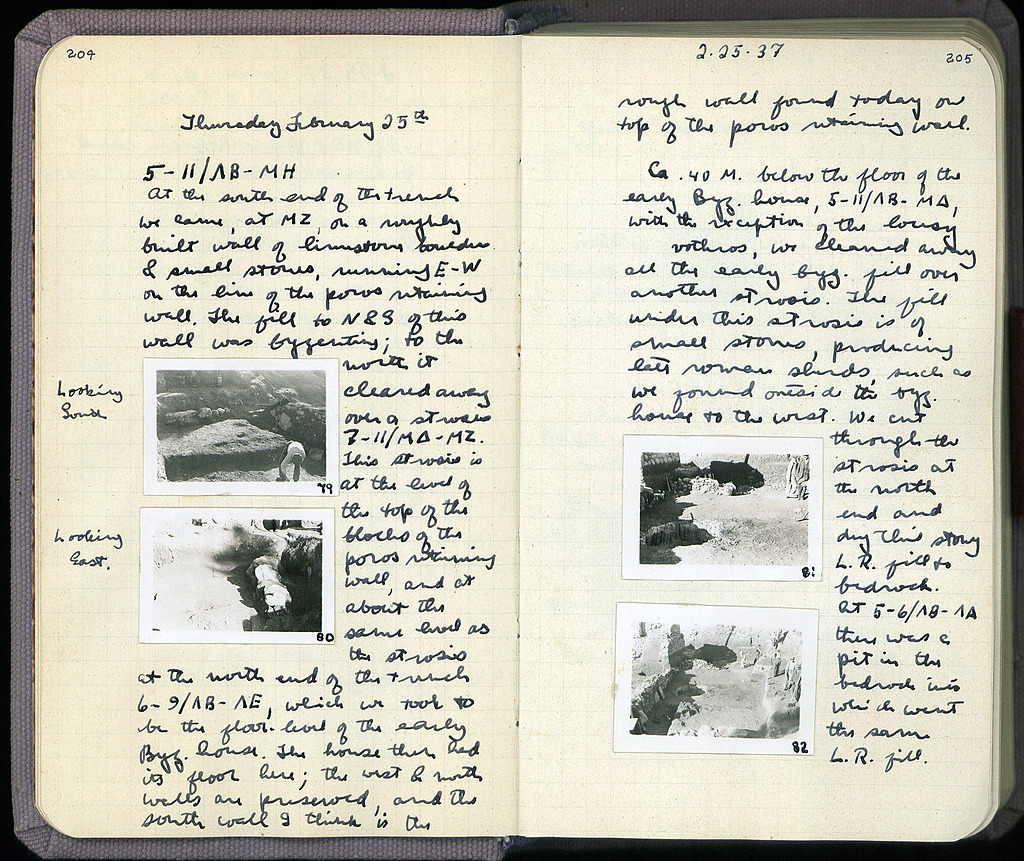 204
Thursday February 25th
5-11/ΛB-MH
At the south end of the trench
we came, at MZ, on a roughly
built wall of limestone boulders
& small stones, running E-W
on the line of the poros retaining
wall. The fill to N & S of this
wall was byzantine; to the
north it
cleared away
over a strosis
7-11/MΔ-MZ.
This strosis is
at the level of
the top of the
blocks of the
poros retaining
wall, and at
about the
same level as
the strosis
at the north end of the trench
6-9/ΛB-ΛE, which we took to
be the floor-level of the early
Byz. house. The house then had
its floor here; the west & north
walls are preserved, and the
south wall I think is the
Looking
South
79
Looking
East.
80
2.25.37
205
rough wall found today on
top of the poros retaining wall.
Ca .40 M. below the floor of the
early Byz. house, 5-11/ΛB-MΔ,
with the exception of the lousy
vothros, we cleared away
all the early byz. fill over
another strosis. The fill
under this strosis is of
small stones, producing
late roman sherds, such as
we found outside the byz.
house to the west. We cut
through the
strosis at
the north
end and
dug this stony
L.R. fill to
bedrock.
At 5-6/ΛB-ΛΔ
there was a
pit in the
bedrock into
which went
the same
L.R. fill.
81
82